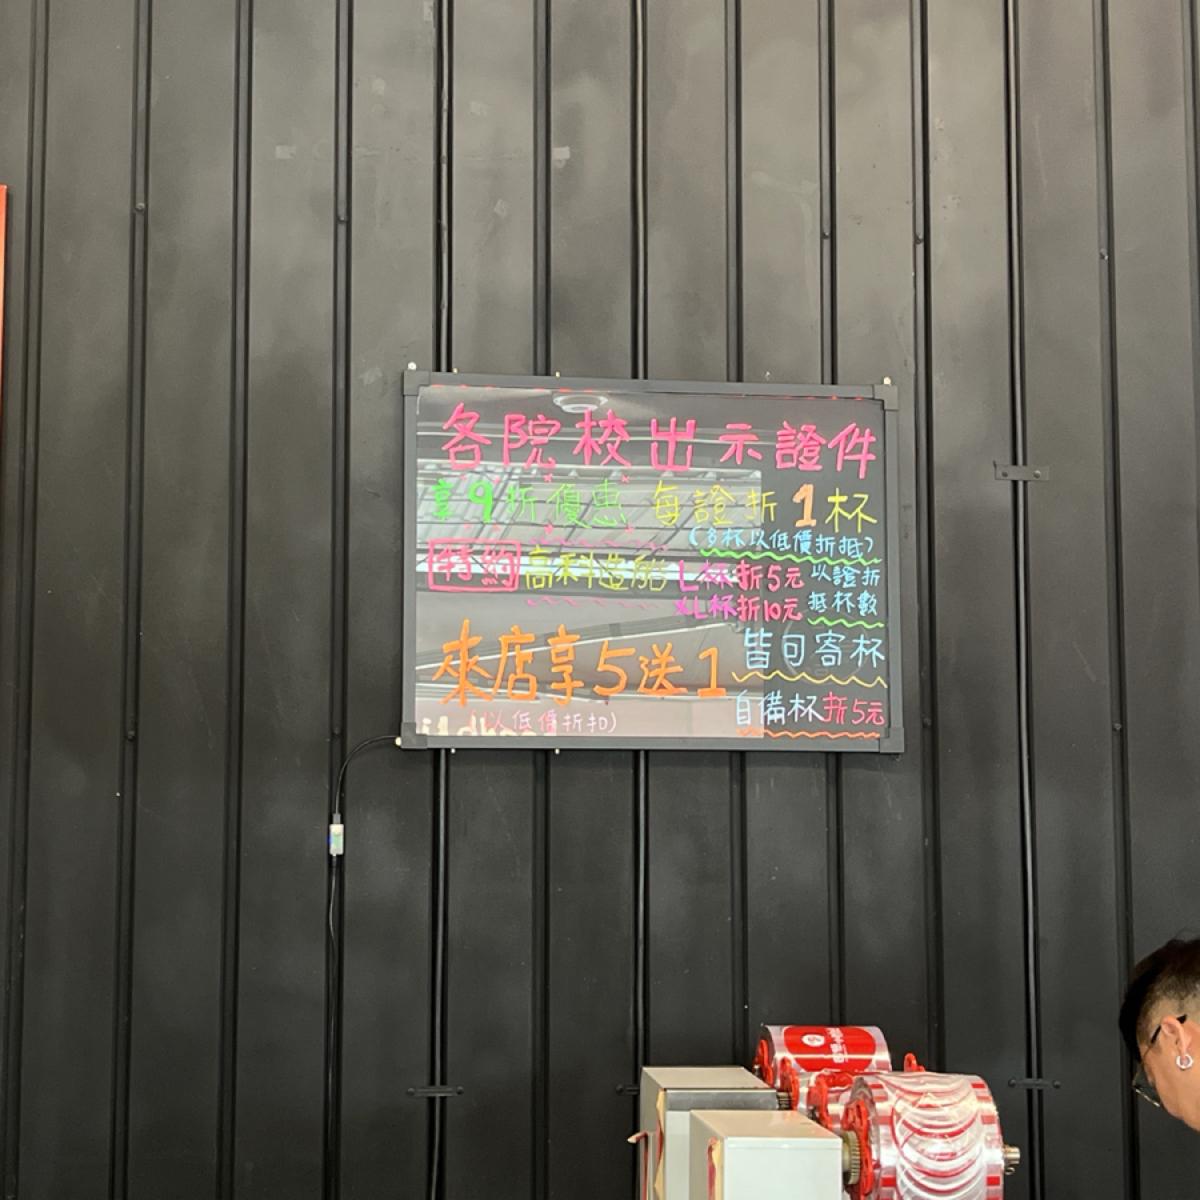 各院校出示證件
享9折優惠 每證折1杯
(多杯以低價折抵)
特約 高科造船 L杯折5元 以證折
XL杯折10元 抵杯數
來店享5送1 皆可寄杯
(以低價折扣) 自備杯折5元